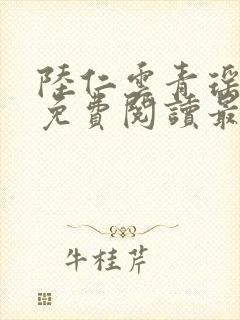 陸仁雲青瑤
免費閱讀最
牛桂芹